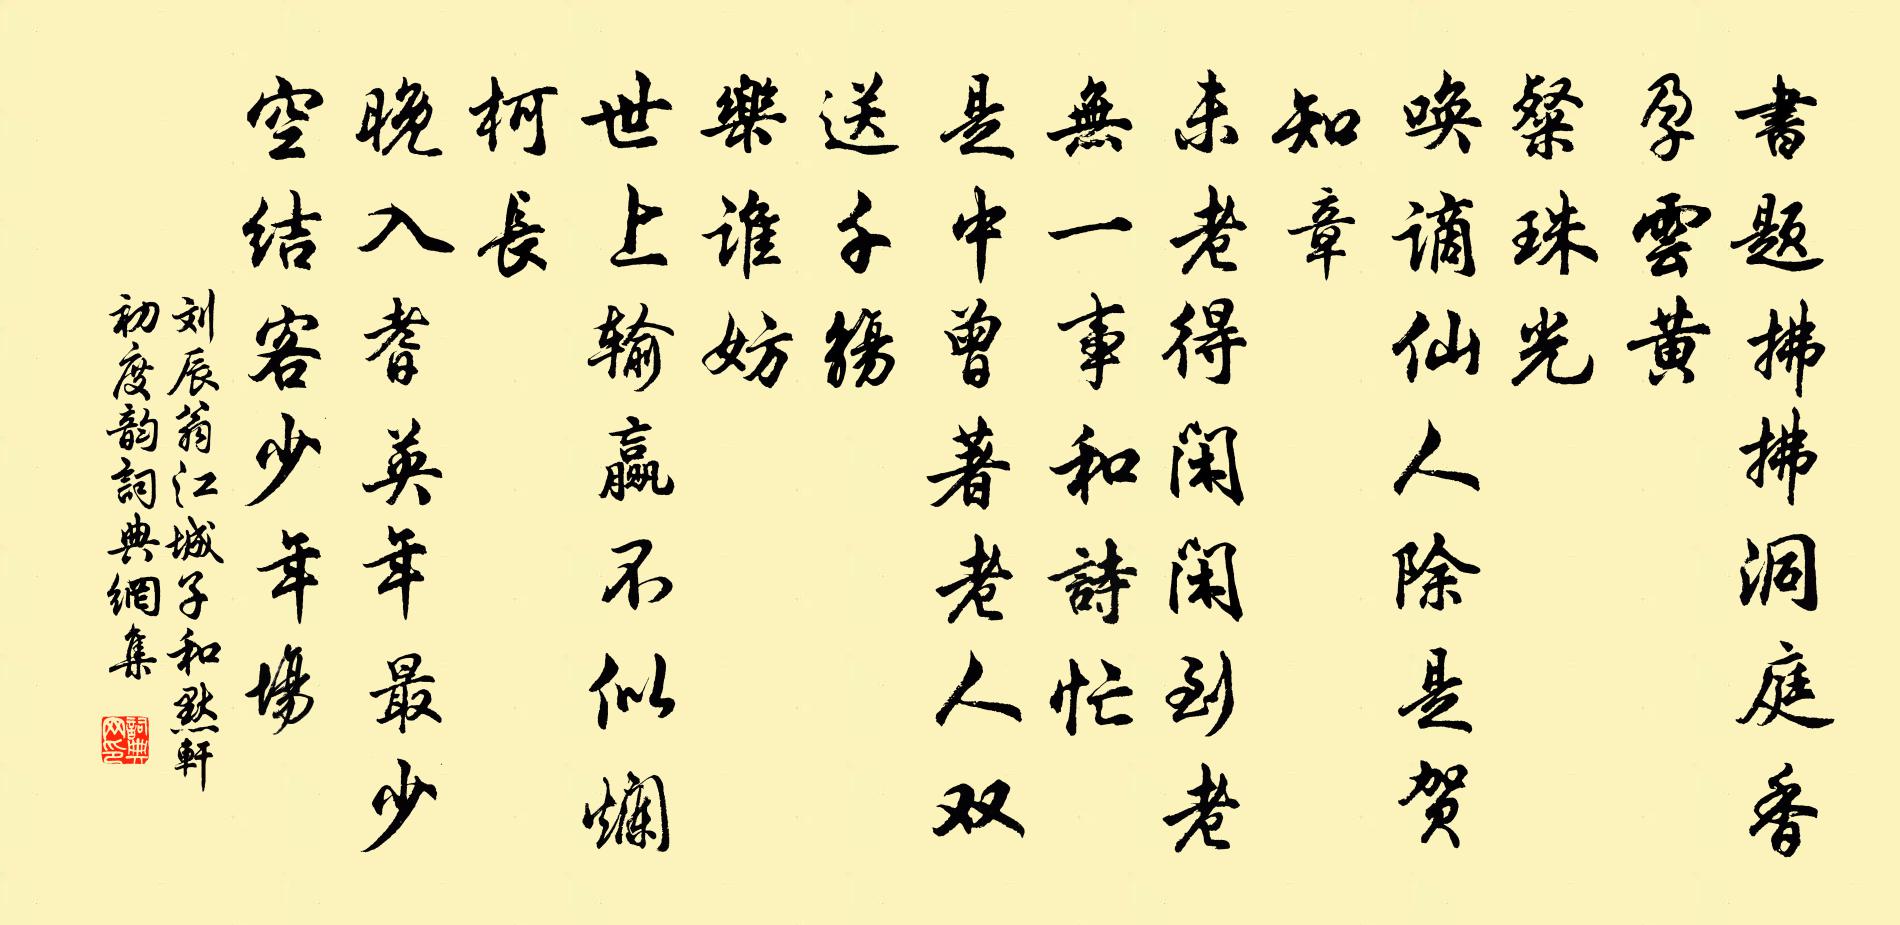 書题拂拂洞庭香
孕雲黄
粲珠光
唤谪仙人除是贺
知章
未老得闲闲到老
無一事和詩忙
是中曾著老人双
送千觴
樂谁妨
世上输赢不似爛
柯長
晚入耆英年最少
空结客少年場
刘辰翁江城子和默軒
初度韵詞典網集
詞典网印